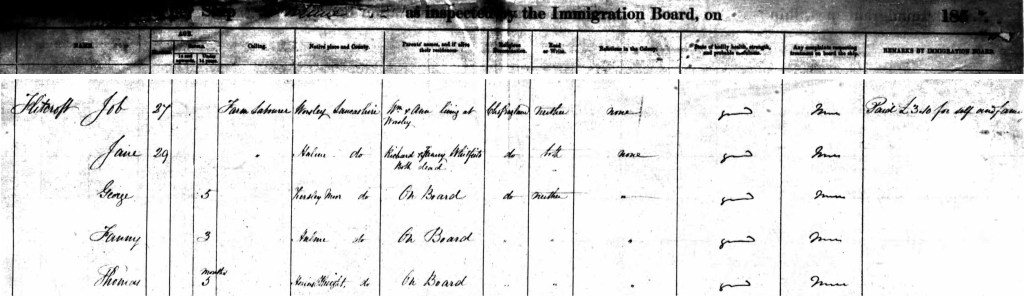 Ship as inspected by the Immigration Board, on 185
NAME. AGE. Calling. Native place and County. Parents' names, and if alive their residence. Religion Read or Write. Relations in the Colony. State of bodily health, strength, and probable usefulness. Any complaints respecting treatment on board the ship. REMARKS BY IMMIGRATION BOARD.
Job 27 Farm Labourer Worsley Lancashire Wm & Ann living at Worsley neither none good None Paid £3.10 for self and fam
Jane 29 " Hulme do Richard & Fanny both dead do both none good None
George 5 Kersley Moor do On Board do neither " good None
Fanny 3 Hulme do On Board " " " good None
Thomas months 5 do On Board " " " good None